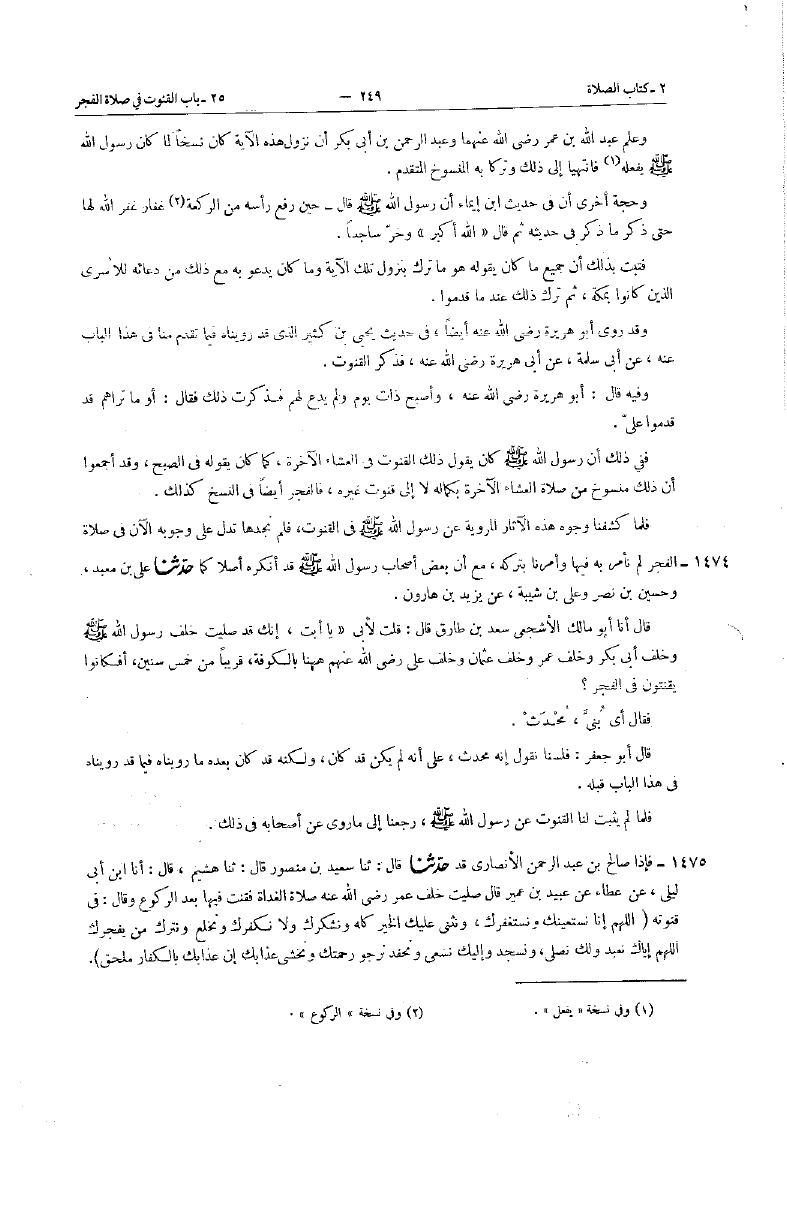 ٢ ـ كتاب الصلاة — ٢٤٩ ٢٥ ـ باب القنوت في صلاة الفجر
وعلم عبد الله بن عمر رضى الله عنهما وعبد الرحمن بن أبى بكر أن نزول هذه الآية كان نسخاً لما كان رسول الله
ﷺ يفعله(١) فانتهيا إلى ذلك وتركا به المفسوخ المتقدم .
وحجة أخرى أن فى حديث ابن إيماء أن رسول الله ﷺ قال ـ حين رفع رأسه من الركعة(٢) غفار غفر الله لها
حتى ذكر ما ذكر فى حديثه ثم قال « الله أكبر » وخرّ ساجداً .
فثبت بذلك أن جميع ما كان يقوله هو ما ترك بنزول تلك الآية وما كان يدعو به مع ذلك من دعائه للأسرى
الذين كانوا بمكة ، ثم ترك ذلك عند ما قدموا .
وقد روى أبو هريرة رضى الله عنه أيضاً ، فى حديث يحيى بن كثير الذى قد رويناه فيما تقدم منا فى هذا الباب
عنه ، عن أبى سلمة ، عن أبى هريرة رضى الله عنه ، فذكر القنوت .
وفيه قال : أبو هريرة رضى الله عنه ، وأصبح ذات يوم ولم يدع لهم فذكرت ذلك فقال : أو ما تراهم قد
قدموا علىّ .
ففى ذلك أن رسول الله ﷺ كان يقول ذلك القنوت فى العشاء الآخرة ، كما كان يقوله فى الصبح ، وقد أجمعوا
أن ذلك منسوخ من صلاة العشاء الآخرة بكماله لا إلى قنوت غيره ، فالفجر أيضاً فى النسخ كذلك .
فلما كشفنا وجوه هذه الآثار المروية عن رسول الله ﷺ فى القنوت، فلم نجدها تدل على وجوبه الآن فى صلاة
١٤٧٤ ـ الفجر لم نأمر به فيها وأمرنا بتركه ، مع أن بعض أصحاب رسول الله ﷺ قد أنكره أصلا كما حدثنا على بن معبد ،
وحسين بن نصر وعلى بن شيبة ، عن يزيد بن هارون .
قال أنا أبو مالك الأشجعى سعد بن طارق قال : قلت لأبى « يا أبت ، إنك قد صليت خلف رسول الله ﷺ
وخلف أبى بكر وخلف عمر وخلف عثمان وخلف على رضى الله عنهم ههنا بالكوفة، قريباً من خمس سنين، أفكانوا
يقنتون فى الفجر ؟
فقال أى بُنىَّ ، مُحْدَث .
قال أبو جعفر : فلسنا نقول إنه محدث ، على أنه لم يكن قد كان ، ولكنه قد كان بعده ما رويناه فيما قد رويناه
فى هذا الباب قبله .
فلما لم يثبت لنا القنوت عن رسول الله ﷺ ، رجعنا إلى ماروى عن أصحابه فى ذلك .
١٤٧٥ ـ فإذا صالح بن عبد الرحمن الأنصارى قد حدثنا قال : ثنا سعيد بن منصور قال : ثنا هشيم ، قال : أنا ابن أبى
ليلى ، عن عطاء عن عبيد بن عمير قال صليت خلف عمر رضى الله عنه صلاة الغداة فقنت فيها بعد الركوع وقال : فى
قنوته ( اللهم إنا نستعينك ونستغفرك ، ونثنى عليك الخير كله ونشكرك ولا نكفرك ونخلع ونترك من يفجرك
اللهم إياك نعبد ولك نصلى، ونسجد وإليك نسعى ونحفد نرجو رحمتك ونخشى عذابك إن عذابك بالكفار ملحق).
(١) وفى نسخة « يفعل » . (٢) وفى نسخة « الركوع » .